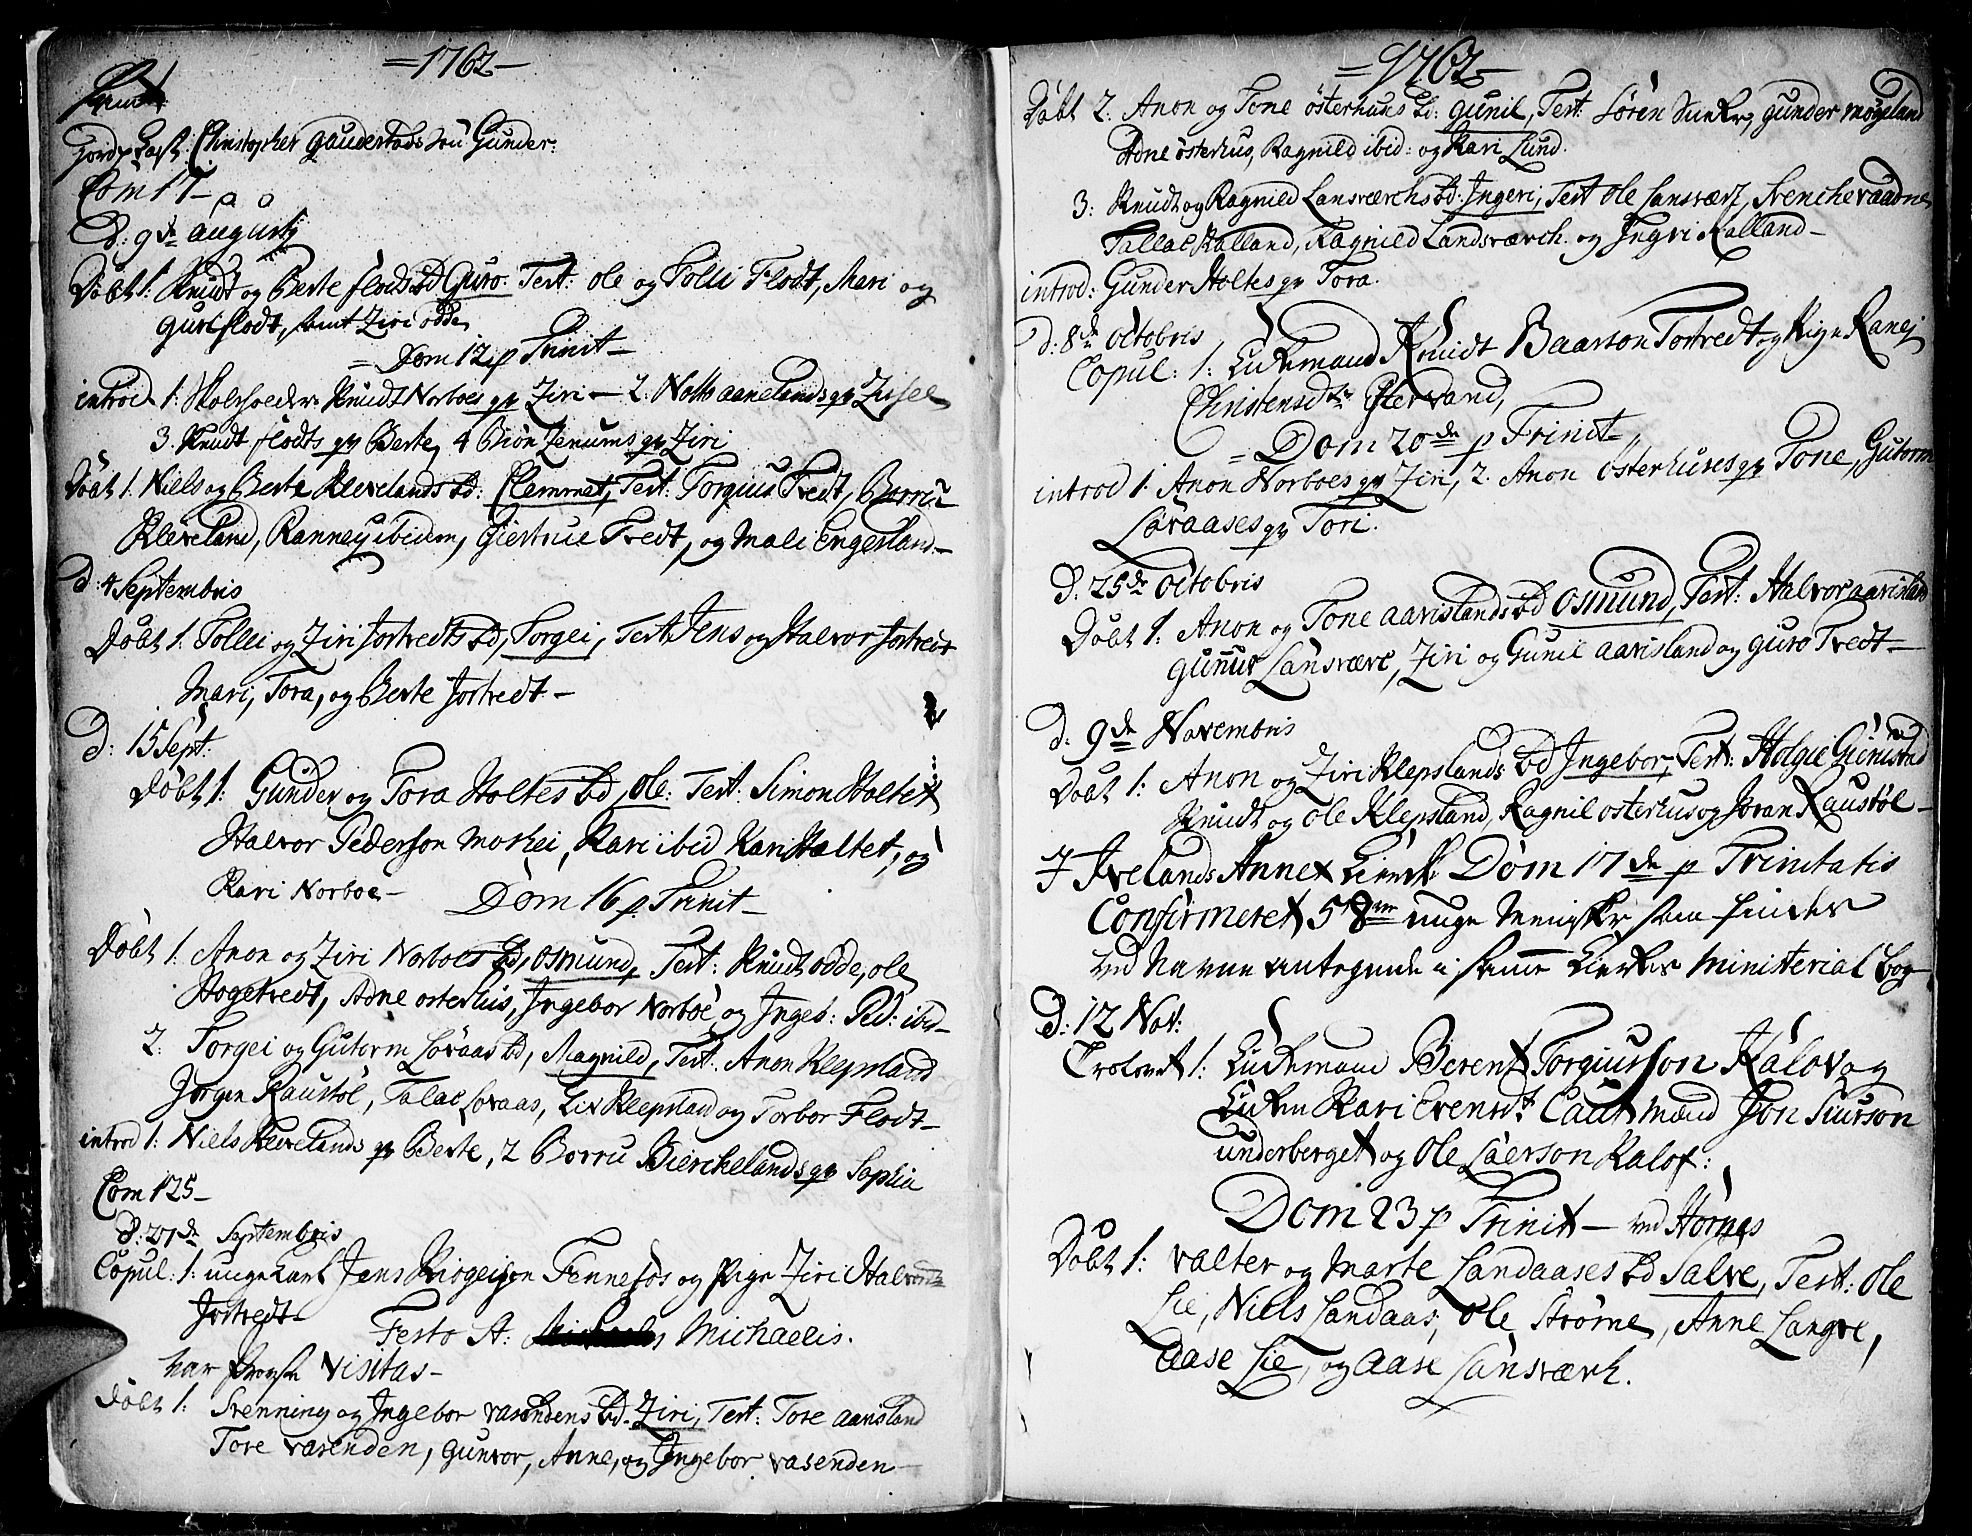 =1762=
Jordp Kast: Christopher Gauderstads Søn Gunder:
Com 17-
D: 9de Augusti
Døbt 1: Knudt og Berte flodts bd Guro. Test: Ole og Tolli Flodt, Mari og
Guri flodt, samt Ziri odde,
= Dom 12 p Trinit-
introd 1: Knudt Norboes qv Ziri - 2. aanelands qv Zissel
3. Knudt flodts qv Berte, 4 Biøn Zenums qv Ziri
Døbt 1. Niels og Berte Klevelands bd: Clemmet, Test: Torgius Tvedt, Borru
Kleveland, Ranney ibidem, Giertrue Tvedt, og Mali Engesland-
d: 4 Septembris
Døbt 1: Tollei og Ziri Jortvedts bd, Torgei, Test: Jens og Halvor Jortvedt
Mari, Tora, og Berte Jortvedt-
D: 15 Sept:
Døbt 1: Gunder og Tora Holtes bd, Ole: Test: Simon Holtet
Halvor Pederson mohei, Kari ibid Kari Holtet, og
Kari Norboe- Dom 16 p Trinit-
Døbt 1. Anon og Ziri Norboes bd, Osmund, Test: Knudt odde, ole
Hogetvedt, Adne osterhus, Ingebor Norboe, og Ingeb: Ped: ibid-
2: Torgei og Gutorm Løvaas bd, Magnild, Test: Anon Klepsland
Jørgen Raustøl, Talac Løvaas, Liv Klepsland og Torbor Flodt-
introd 1: Niels Klevelands qv Berte, 2 Borru Bierchelands qv Sophia
Com 125-
D: 27de Septembris
Copul: 1: unge karl Jens Fennefos og Pige Ziri Halvors
Jortvedt-
Festo St: Michaelis.
har Visitas-
Døbt 1: Svenning og Ingebor vasendens bd. Ziri, Test: Tore aarisland
Tore vasenden, Gunvor, Anne, og Ingebor vasenden-
=1762=
Døbt 2. Anon og Tone österhuus bd: Gunil, Test: Søren Gunder møgland
Adne österhus, Ragnild ibid: og Kari Lund.
3: Knudt og Ragnild Lansværchs bd: Ingeri, Test Ole Lansværk, Svenche vaadne,
Tallac Kalland, Ragnild Landsværch. og Ingri Kalland-
introd: Gunder Holtes qv Tora.
d: 8de Octobris
Copul: 1: Knudt Baarson Tortvedt og Pige Ranei
Christensdtr
= Dom 20de p Trinit-
introd 1. Anon Norboes qv Ziri, 2. Anon Osterhuses qv Tone, Gutorm
Løvaases qv Tori.
D. 25de Octobris
Døbt 1: Anon og Tone aarislands bd Osmund, Test: Halvor aarisland
Gunnur Lansværc, Ziri og Gunil aarisland og guro Tvedt-
D. 9de Novembris
Døbt 1: Anon og Ziri Klepslands bd Ingebor, Test: Helgie
Knudt og Ole Klepsland, Ragnil osterhus og Joran Raustøl-
I Ivelands Annex Kirck Dom 17de p Trinitatis
Confirmeret 58 unge Mennisker som findes
ved Navne antegnede i samme Kirkes Ministerial bog
D: 12 Nov:
Trolovet 1: Berent Torgiusson Kalov og
Kari Evensdt Caut mænd Jon Siurson
underberget og Ole Loerson Kalof:
Dom 23 p Trinit- ved Hornes
Døbt 1: Valter og Marte Landaases bd Salve, Test: Ole
Lie, Niels Landaas, Ole Strøme, Anne Langve,
Aase Lie, og Aase Lansværk.